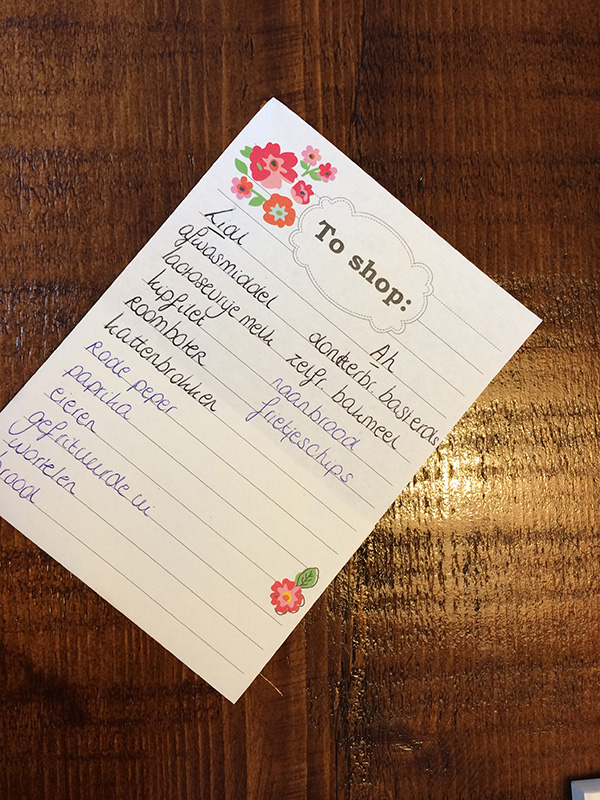 To shop:
Lidl
afwasmiddel
lactosevrije melk
kipfilet
roomboter
kattenbrokken
Rode peper
paprika
eieren
gefrituurde ui
wortelen
brood
Ah
donkerbr. basterds
zelfr. bakmeel
naanbrood
frietjeschips